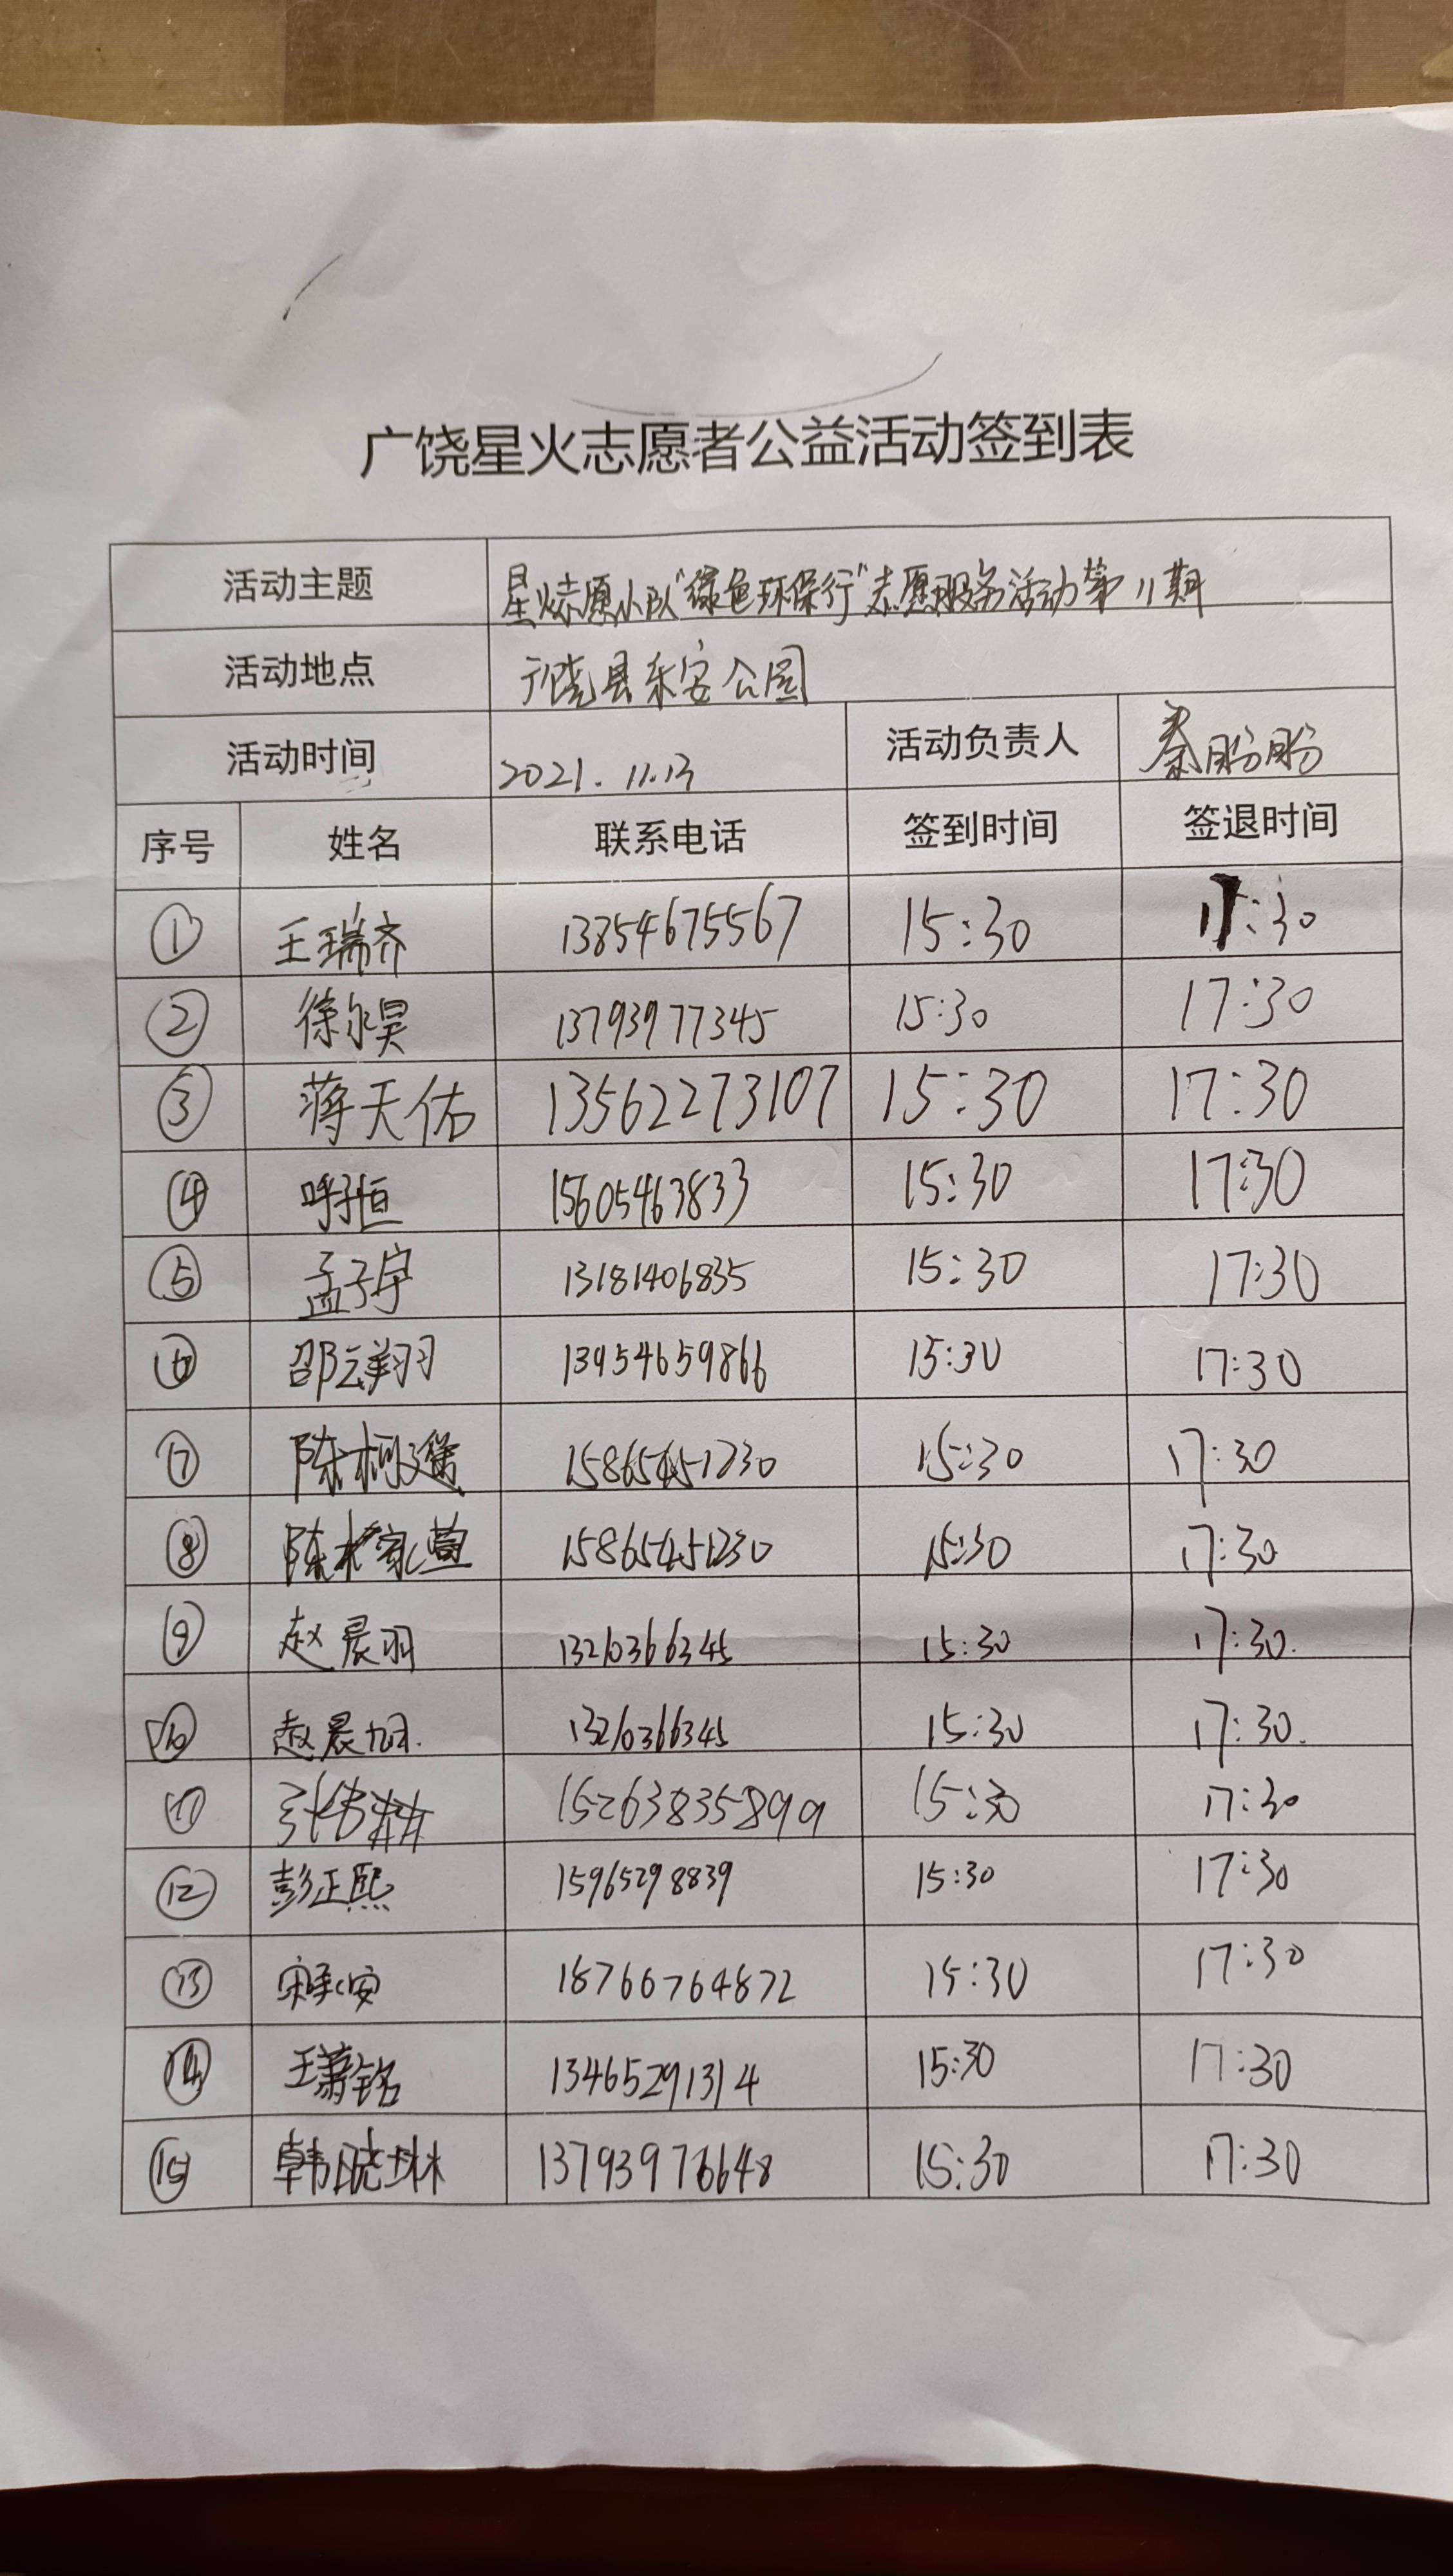 广饶星火志愿者公益活动签到表
活动主题 星火志愿小队“绿色环保行”志愿服务活动第11期
活动地点 广饶县乐安公园
活动时间 2021.11.13 活动负责人 秦盼盼
序号 姓名 联系电话 签到时间 签退时间
① 王瑞齐 13854675567 15:30 17:30
② 徐尔昊 13793977345 15:30 17:30
③ 蒋天佑 13562273107 15:30 17:30
④ 呼子恒 15605463833 15:30 17:30
⑤ 孟子宇 13181406835 15:30 17:30
⑥ 邵云翔 13954659866 15:30 17:30
⑦ 陈柯瑾 15865451230 15:30 17:30
⑧ 陈 萱 15865451230 15:30 17:30
⑨ 赵晨羽 13210366345 15:30 17:30.
⑩ 赵晨旭. 13210366345 15:30 17:30.
⑪ 15263835899 15:30 17:30
⑫ 彭正熙 15965298839 15:30 17:30
⑬ 宋承安 18766764872 15:30 17:30
⑭ 王萧铭 13465291314 15:30 17:30
⑮ 韩晓琳 13793976648 15:30 17:30